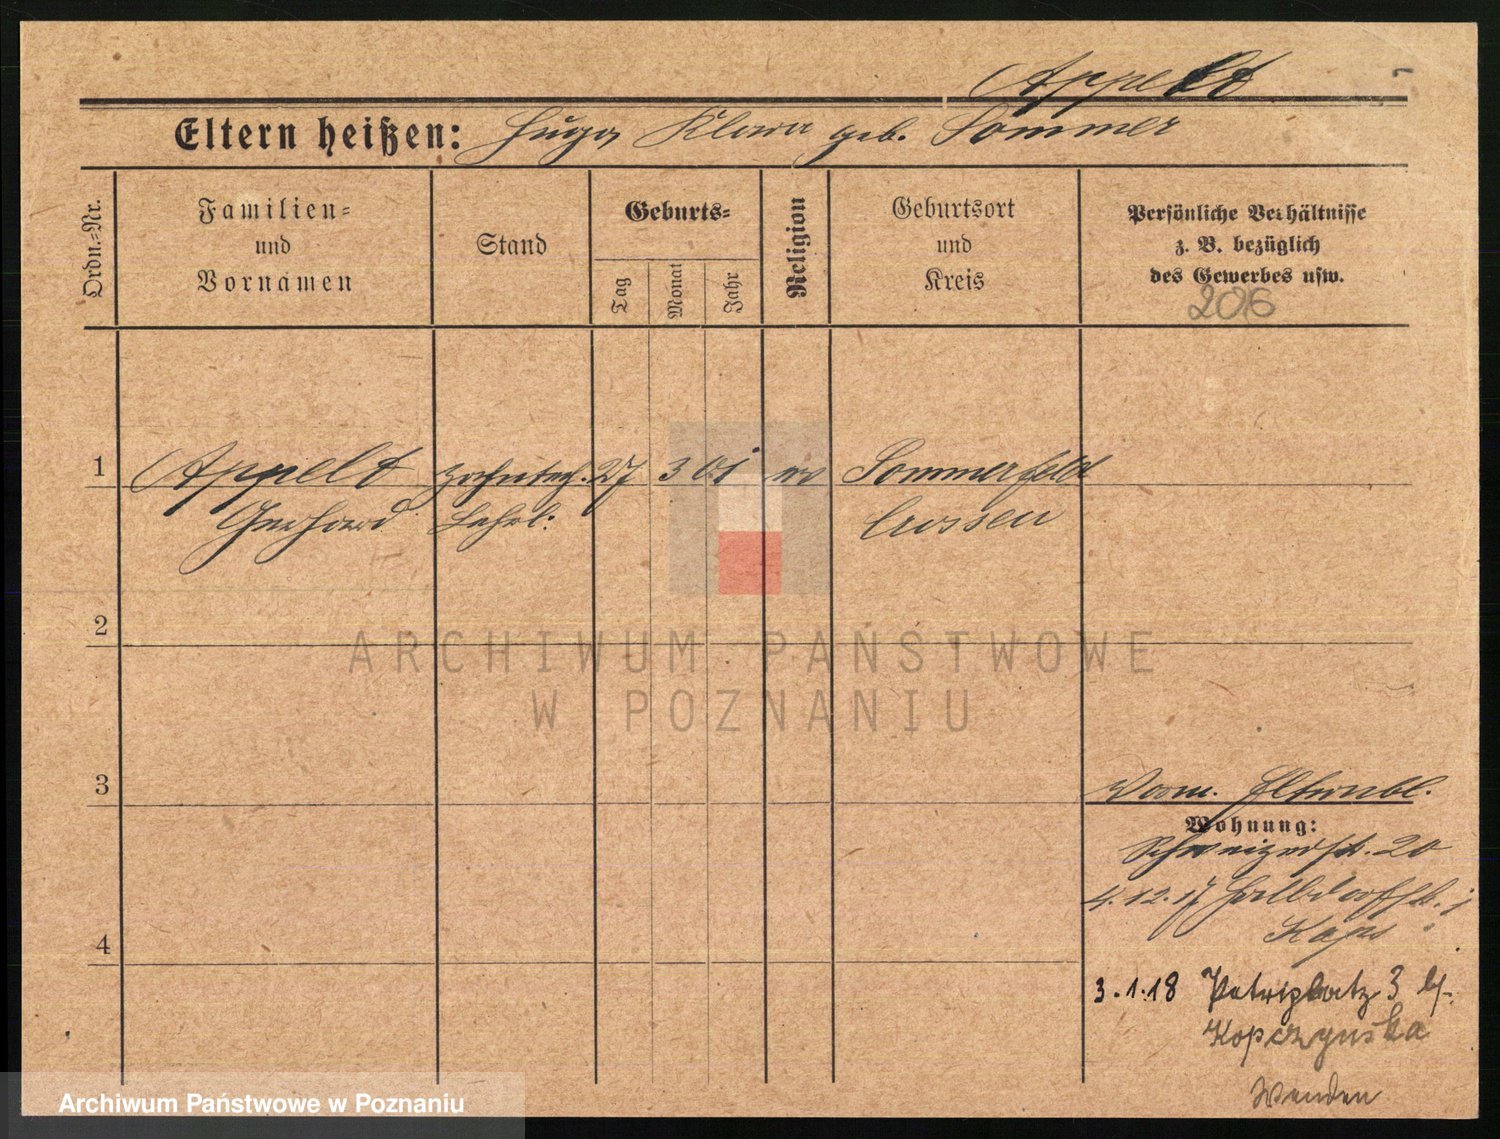 Appelt
Eltern heißen: Hugo Klara geb. Sommer
Ordn.-Nr.
Familien-
und
Vornamen
Stand
Geburts-
Tag
Monat
Jahr
Religion
Geburtsort
und
Kreis
Persönliche Verhältnisse
z. B. bezüglich
des Gewerbes usw.
206
1 Appelt Zahntech. 27 3 01 ev Sommerfeld
Gerhard Lehrl. Crossen
2
3
Wohnung:
20
4.12.17
4
3.1.18 Petriplatz 3 bj.
Kopczynska
Wenden
ARCHIWUM PAŃSTWOWE
W POZNANIU
Archiwum Państwowe w Poznaniu